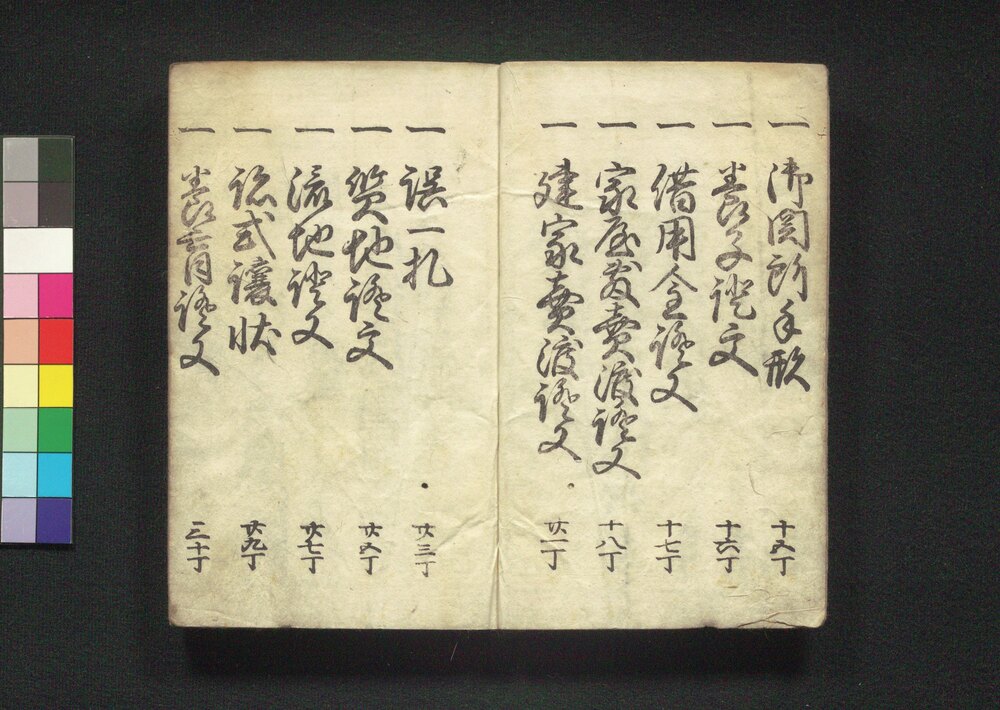 一 御関所手形 十五丁
一 養子證文 十六丁
一 借用金證文 十七丁
一 家屋敷賣渡證文 十八丁
一 建家賣渡證文 廿一丁
一 誤一札 廿三丁
一 質地證文 廿五丁
一 流地證文 廿七丁
一 式讓状 廿九丁
一 證文 三十丁